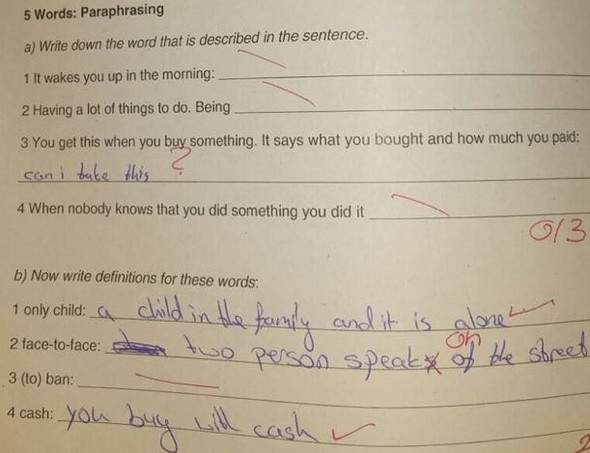 5 Words: Paraphrasing
a) Write down the word that is described in the sentence.
1 It wakes you up in the morning:
2 Having a lot of things to do. Being
3 You get this when you buy something. It says what you bought and how much you paid:
can i take this ?
4 When nobody knows that you did something you did it
0/3
b) Now write definitions for these words:
1 only child: a child in the family and it is alone
2 face-to-face: two person speak of the street
on
3 (to) ban:
4 cash: you buy will cash
2